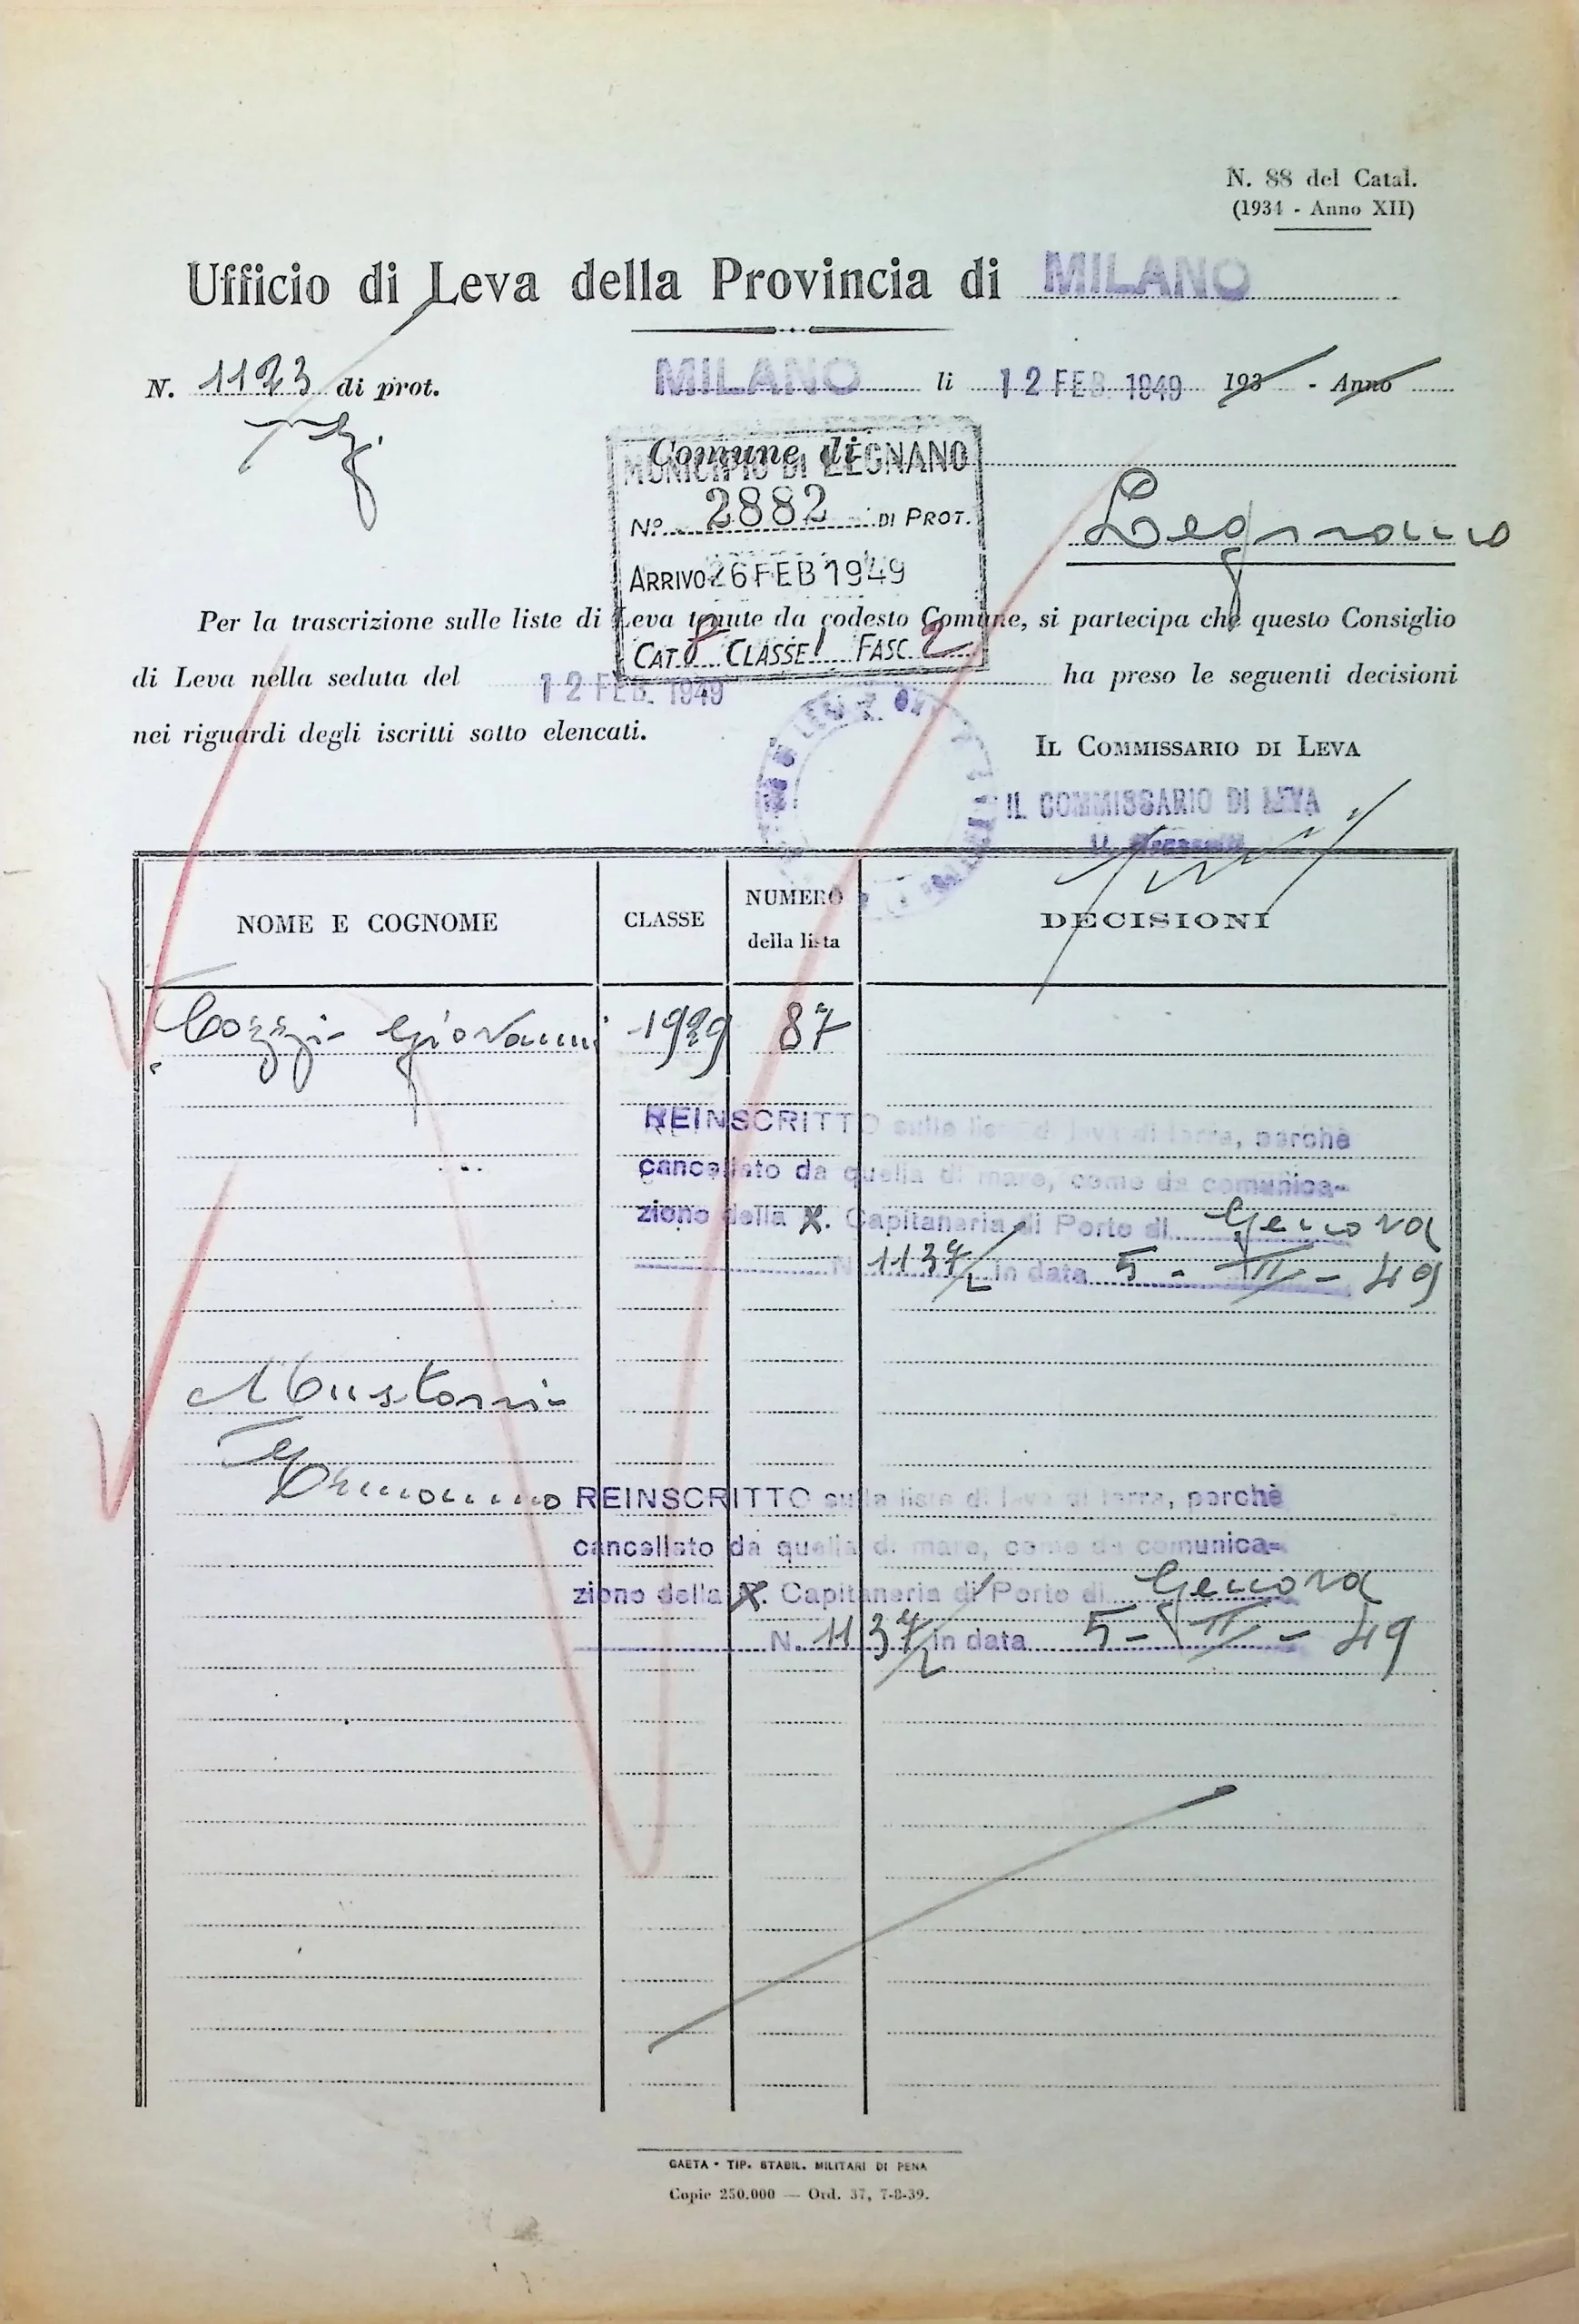 N. 88 del Catal.
(1934 - Anno XII)
Ufficio di Leva della Provincia di MILANO
N. 1123 di prot.
MILANO li 12 FEB. 1949 193 - Anno
Comune di
MUNICIPIO DI LEGNANO
Nº. 2882 DI PROT.
Legnano
ARRIVO 26 FEB 1949
Per la trascrizione sulle liste di Leva tenute da codesto Comune, si partecipa che questo Consiglio
CAT. 8 CLASSE 1 FASC. 2
di Leva nella seduta del 12 FEB. 1949 ha preso le seguenti decisioni
nei riguardi degli iscritti sotto elencati.
IL COMMISSARIO DI LEVA
IL COMMISSARIO DI LEVA
NOME E COGNOME CLASSE NUMERO della lista DECISIONI
Cozzi Giovanni 1929 87
REINSCRITTO sulle liste di leva di terra, perchè
cancellato da quella di mare, come da comunica-
zione della R. Capitaneria di Porto di Genova
N. 1137/L in data 5 - II - 49
Mustoni
REINSCRITTO sulle liste di leva di terra, perchè
cancellato da quella di mare, come da comunica-
zione della R. Capitaneria di Porto di Genova
N. 1137/L in data 5 - II - 49
GAETA - TIP. STABIL. MILITARI DI PENA
Copie 250.000 — Ord. 37, 7-8-39.